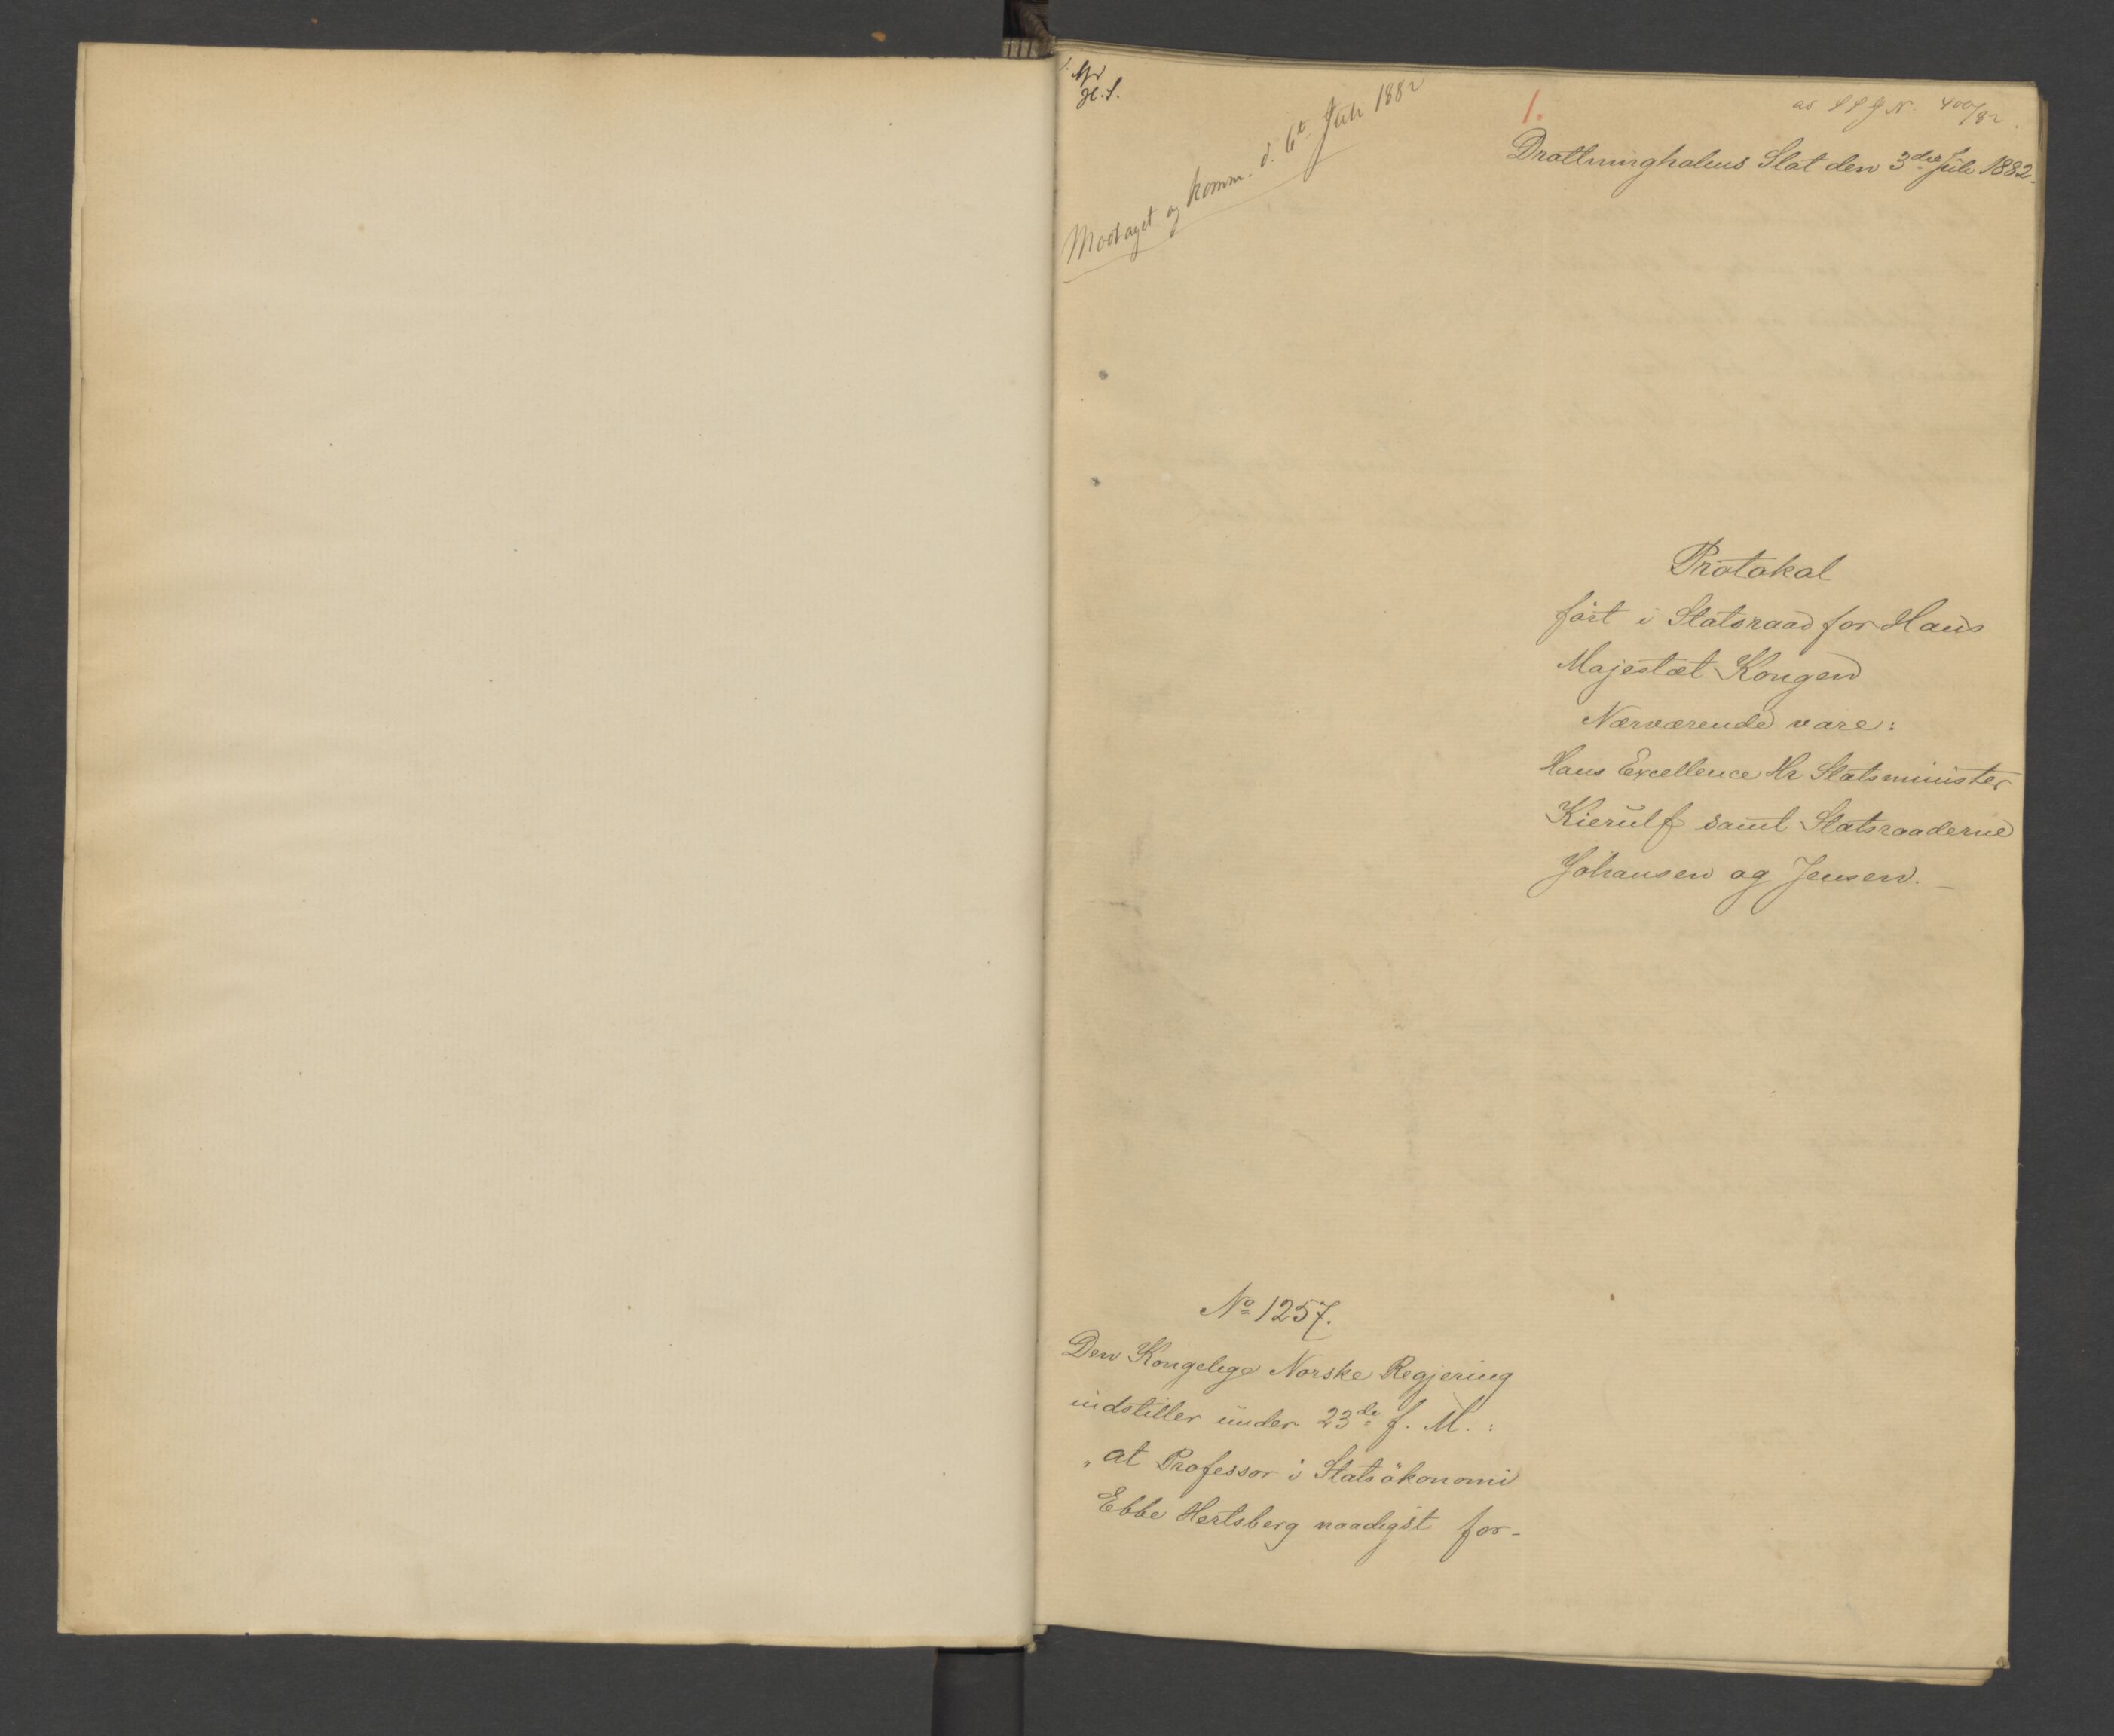 H. S.
Modtaget og komm. d. 6t Juli 1882
1.
400/82.
Drottningholms Slot den 3die Juli 1882.
Protokol
ført i Statsraad for Hans
Majestæt Kongen
Nærværende vare:
Hans Excellence Hr Statsminister
Kierulf samt Statsraaderne
Johansen og Jensen. —
No 1257.
Den Kongelige Norske Regjering
indstiller under 23de f. M.:
„at Professor i Statsøkonomi
Ebbe Hertsberg naadigst for-